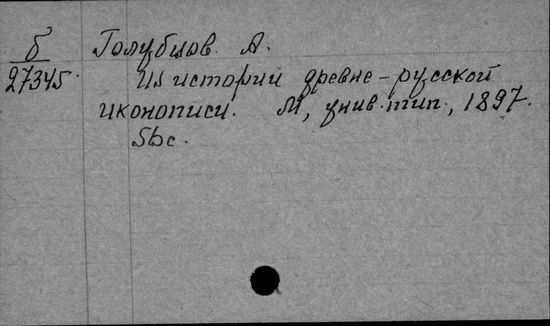 б Голубцов. А.
27345. Из истории древне-русской
иконописи. М, унив. тип., 1897.
5bc.